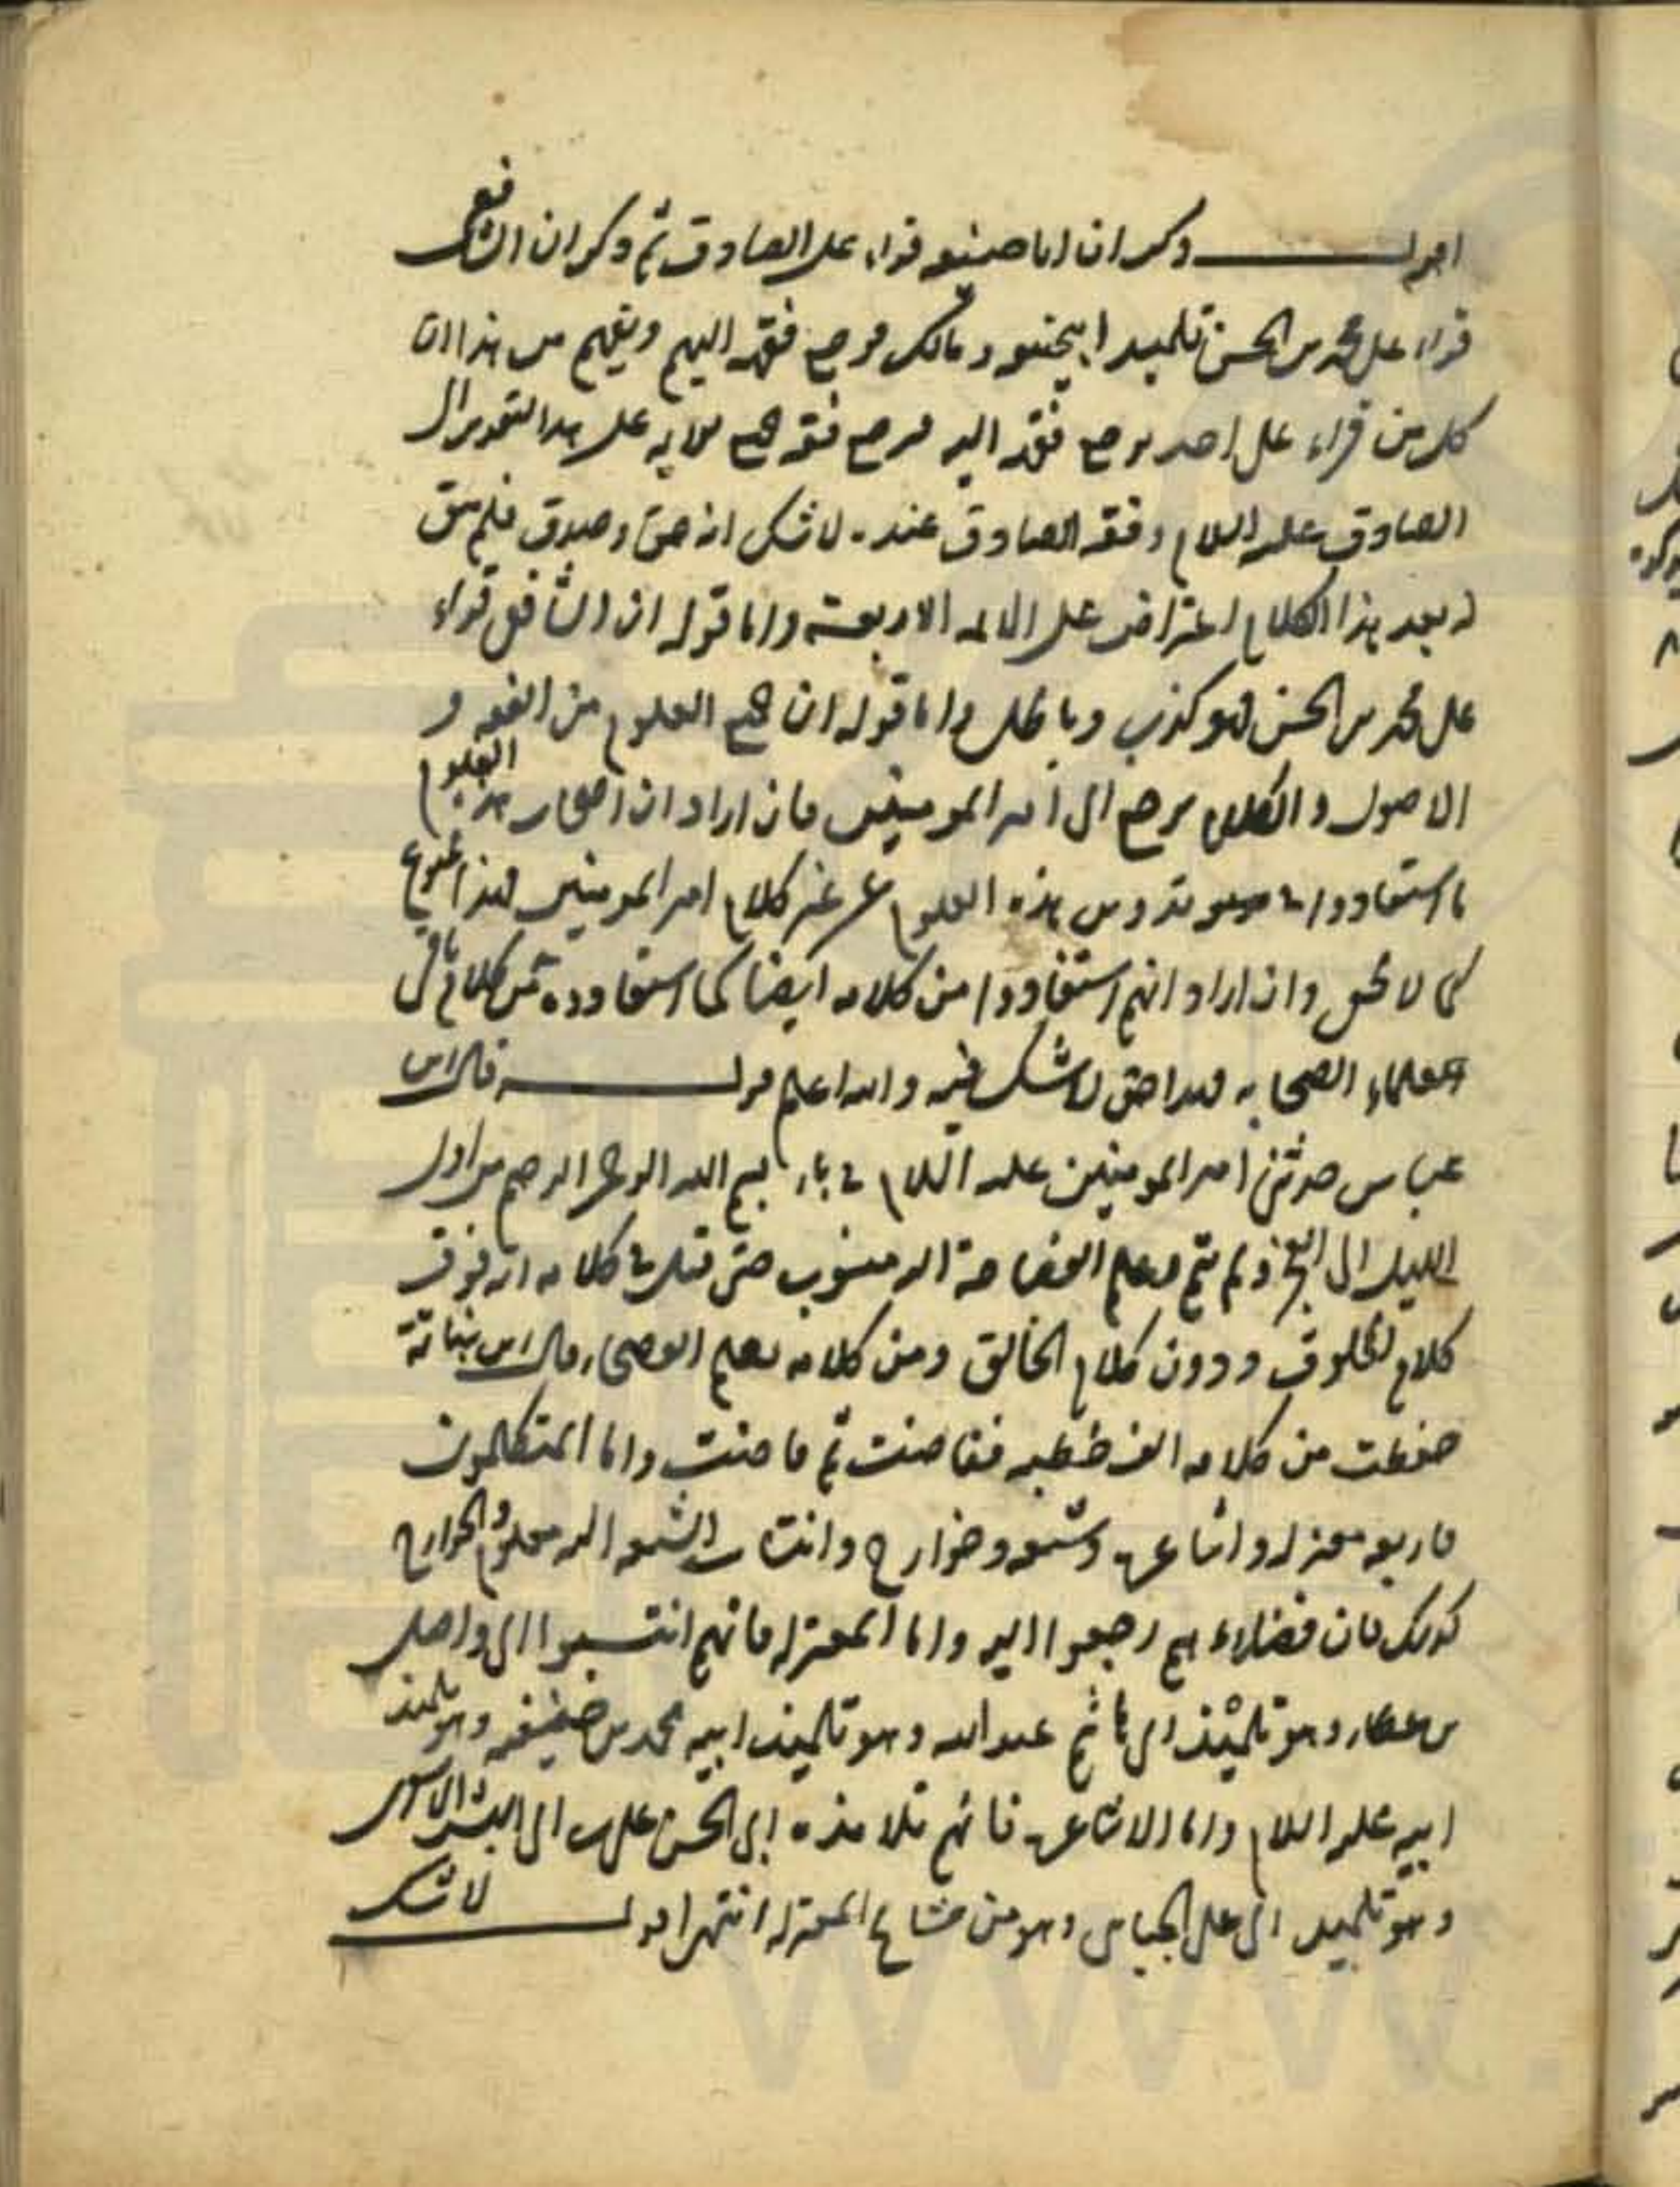 اقول ذكر ان ابا حنيفه قراء على الصادق ثم ذكر ان الشافعي
قراء على محمد بن الحسن تلميذ ابيحنيفه و مالك فرجع فقهه اليهم ويفهم من هذا ان
كل من قراء على احد يرجع فقهه اليه فرجع فقه هم على هذا التقدير الى
الصادق عليه السلام وفقه الصادق عنده لا شك انه حق وصدق فلم يبق
له بعد هذا الكلام اعتراض على الائمه الاربعة واما قوله ان الشافعي قراء
على محمد بن الحسن فهو كذب وباطل واما قوله ان جميع العلوم من الفقه و
الاصول والكلام يرجع الى امير المومنين فان اراد ان اصحاب هذه العلوم
ما استفادوا هذه العلوم عن غير كلام امير المومنين فهذا ممنوع
كما لا يخفى وان اراد انهم استفادوا من كلامه ايضا كما استفادوه من كلام باقى
علماء الصحابه فهذا حق لا شك فيه والله اعلم قوله قال ابن
عباس حدثنى امير المومنين عليه السلام فى باء بسم الله الرحمن الرحيم من اول
الليل الى الفجر ولم يتم وعلم الفصاحة اليه منسوب حتى قيل فى كلامه انه فوق
كلام المخلوق ودون كلام الخالق ومن كلامه تعلم الفصحاء قال ابن نباتة
حفظت من كلامه الف خطبه ففاضت ثم فاضت واما المتكلمون
فاربعه معتزله واشاعره وشيعه وخوارج وانتساب الشيعه اليه معلوم والخوارج
كذلك فان فضلاءهم رجعوا اليه واما المعتزله فانهم انتسبوا الى واصل
بن عطار وهو تلميذ ابى هاشم عبد الله وهو تلميذ ابيه محمد بن حنيفه وهو تلميذ
ابيه عليه السلام واما الاشاعره فانهم تلامذه ابى الحسن على بن ابى البشر الاشعرى
وهو تلميذ ابى على الجبايى وهو من مشايخ المعتزله انتهى اقول لا شك